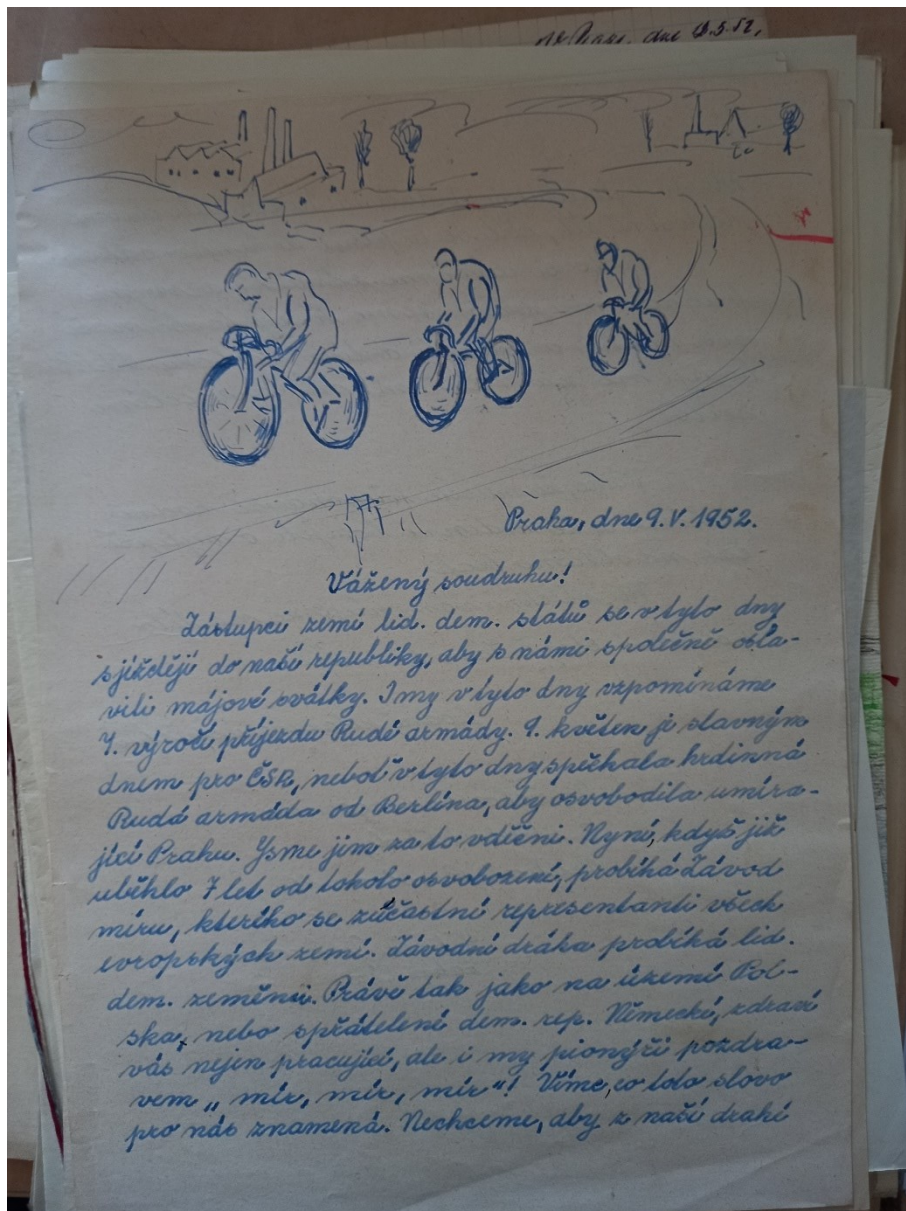 dne 9.5.52,
Praha, dne 9. V. 1952.
Vážený soudruhu!
Zástupci zemí lid. dem. států se v tyto dny
sjíždějí do naší republiky, aby s námi společně osla-
vili májové svátky. I my v tyto dny vzpomínáme
7. výročí příjezdu Rudé armády. 9. květen je slavným
dnem pro ČSR, neboť v tyto dny spěchala hrdinná
Rudá armáda od Berlína, aby osvobodila umíra-
jící Prahu. Jsme jim za to vděčni. Nyní, když již
uběhlo 7 let od tohoto osvobození, probíhá Závod
míru, kterého se zúčastní representanti všech
evropských zemí. Závodní dráha probíhá lid.
dem. zeměmi. Právě tak jako na území Pol-
ska, nebo spřátelené dem. rep. Německé, zdraví
vás nejen pracující, ale i my pionýři pozdra-
vem „ mír, mír, mír "! Víme, co toto slovo
pro nás znamená. Nechceme, aby z naší drahé